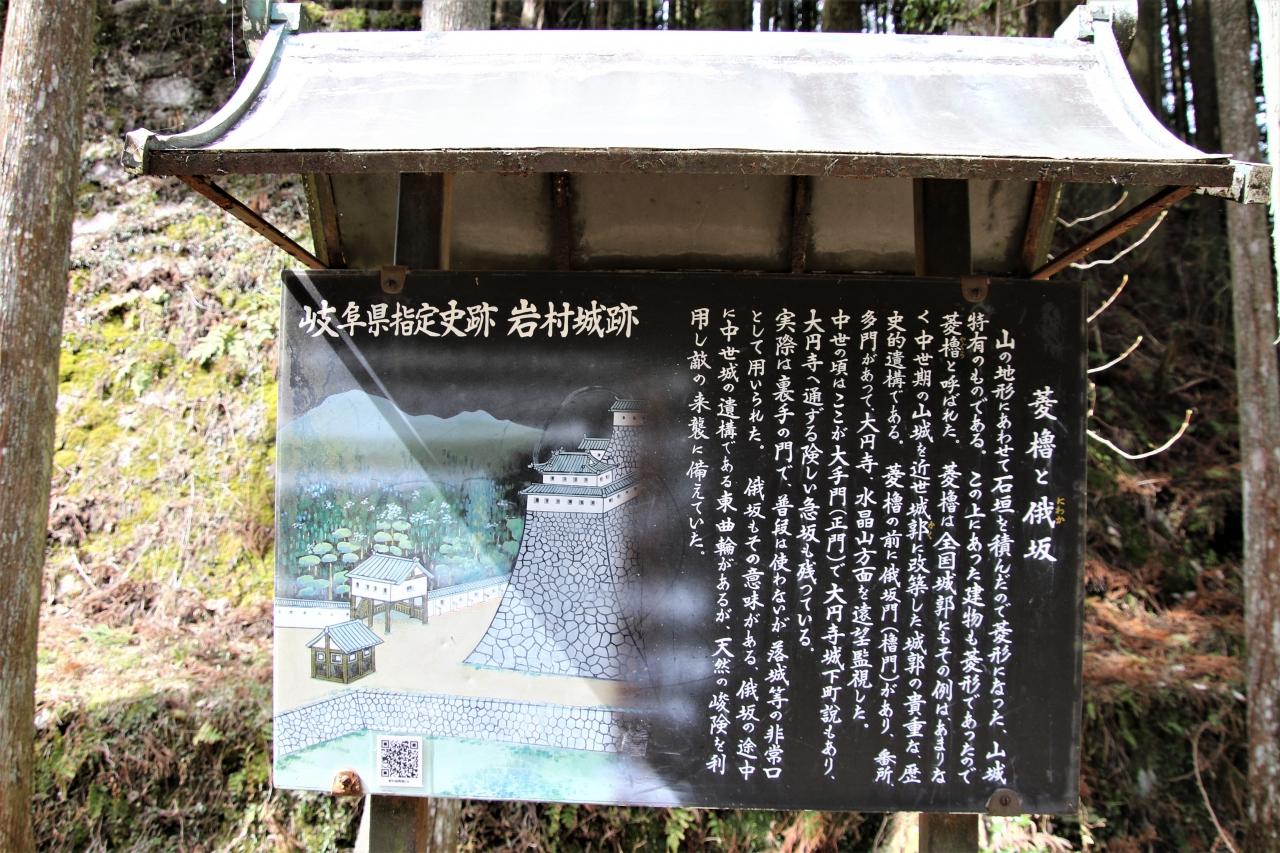 岐阜県指定史跡 岩村城跡
菱櫓と俄坂
にわか
山の地形にあわせて石垣を積んだので菱形になった、山城
特有のものである。この上にあった建物も菱形であったので
菱櫓と呼ばれた。菱櫓は全国城郭にもその例はあまりな
く中世期の山城を近世城郭に改築した城郭の貴重な歴
史的遺構である。菱櫓の前に俄坂門(櫓門)があり、番所、
多門があつて大円寺、水晶山方面を遠望監視した。
中世の頃はここが大手門(正門)で大円寺城下町説もあり、
大円寺へ通ずる険しい急坂も残っている。
実際は裏手の門で、普段は使わないが落城等の非常口
として用いられた。俄坂もその意味がある。俄坂の途中
に中世城の遺構である東曲輪があるが、天然の峻険を利
用し敵の来襲に備えていた。